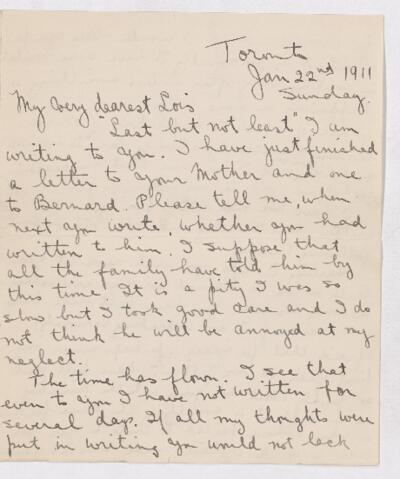 Toronto
Jan 22nd 1911
Sunday.
My very dearest Lois
"Last but not least" I am
writing to you. I have just finished
a letter to your Mother and one
to Bernard. Please tell me, when
next you write, whether you had
written to him. I suppose that
all the family have told him by
this time. It is a pity I was so
slow but I took good care and I do
not think he will be annoyed at my
neglect.
The time has flown. I see that
even to you I have not written for
several days. If all my thoughts were
put in writing you would not lack